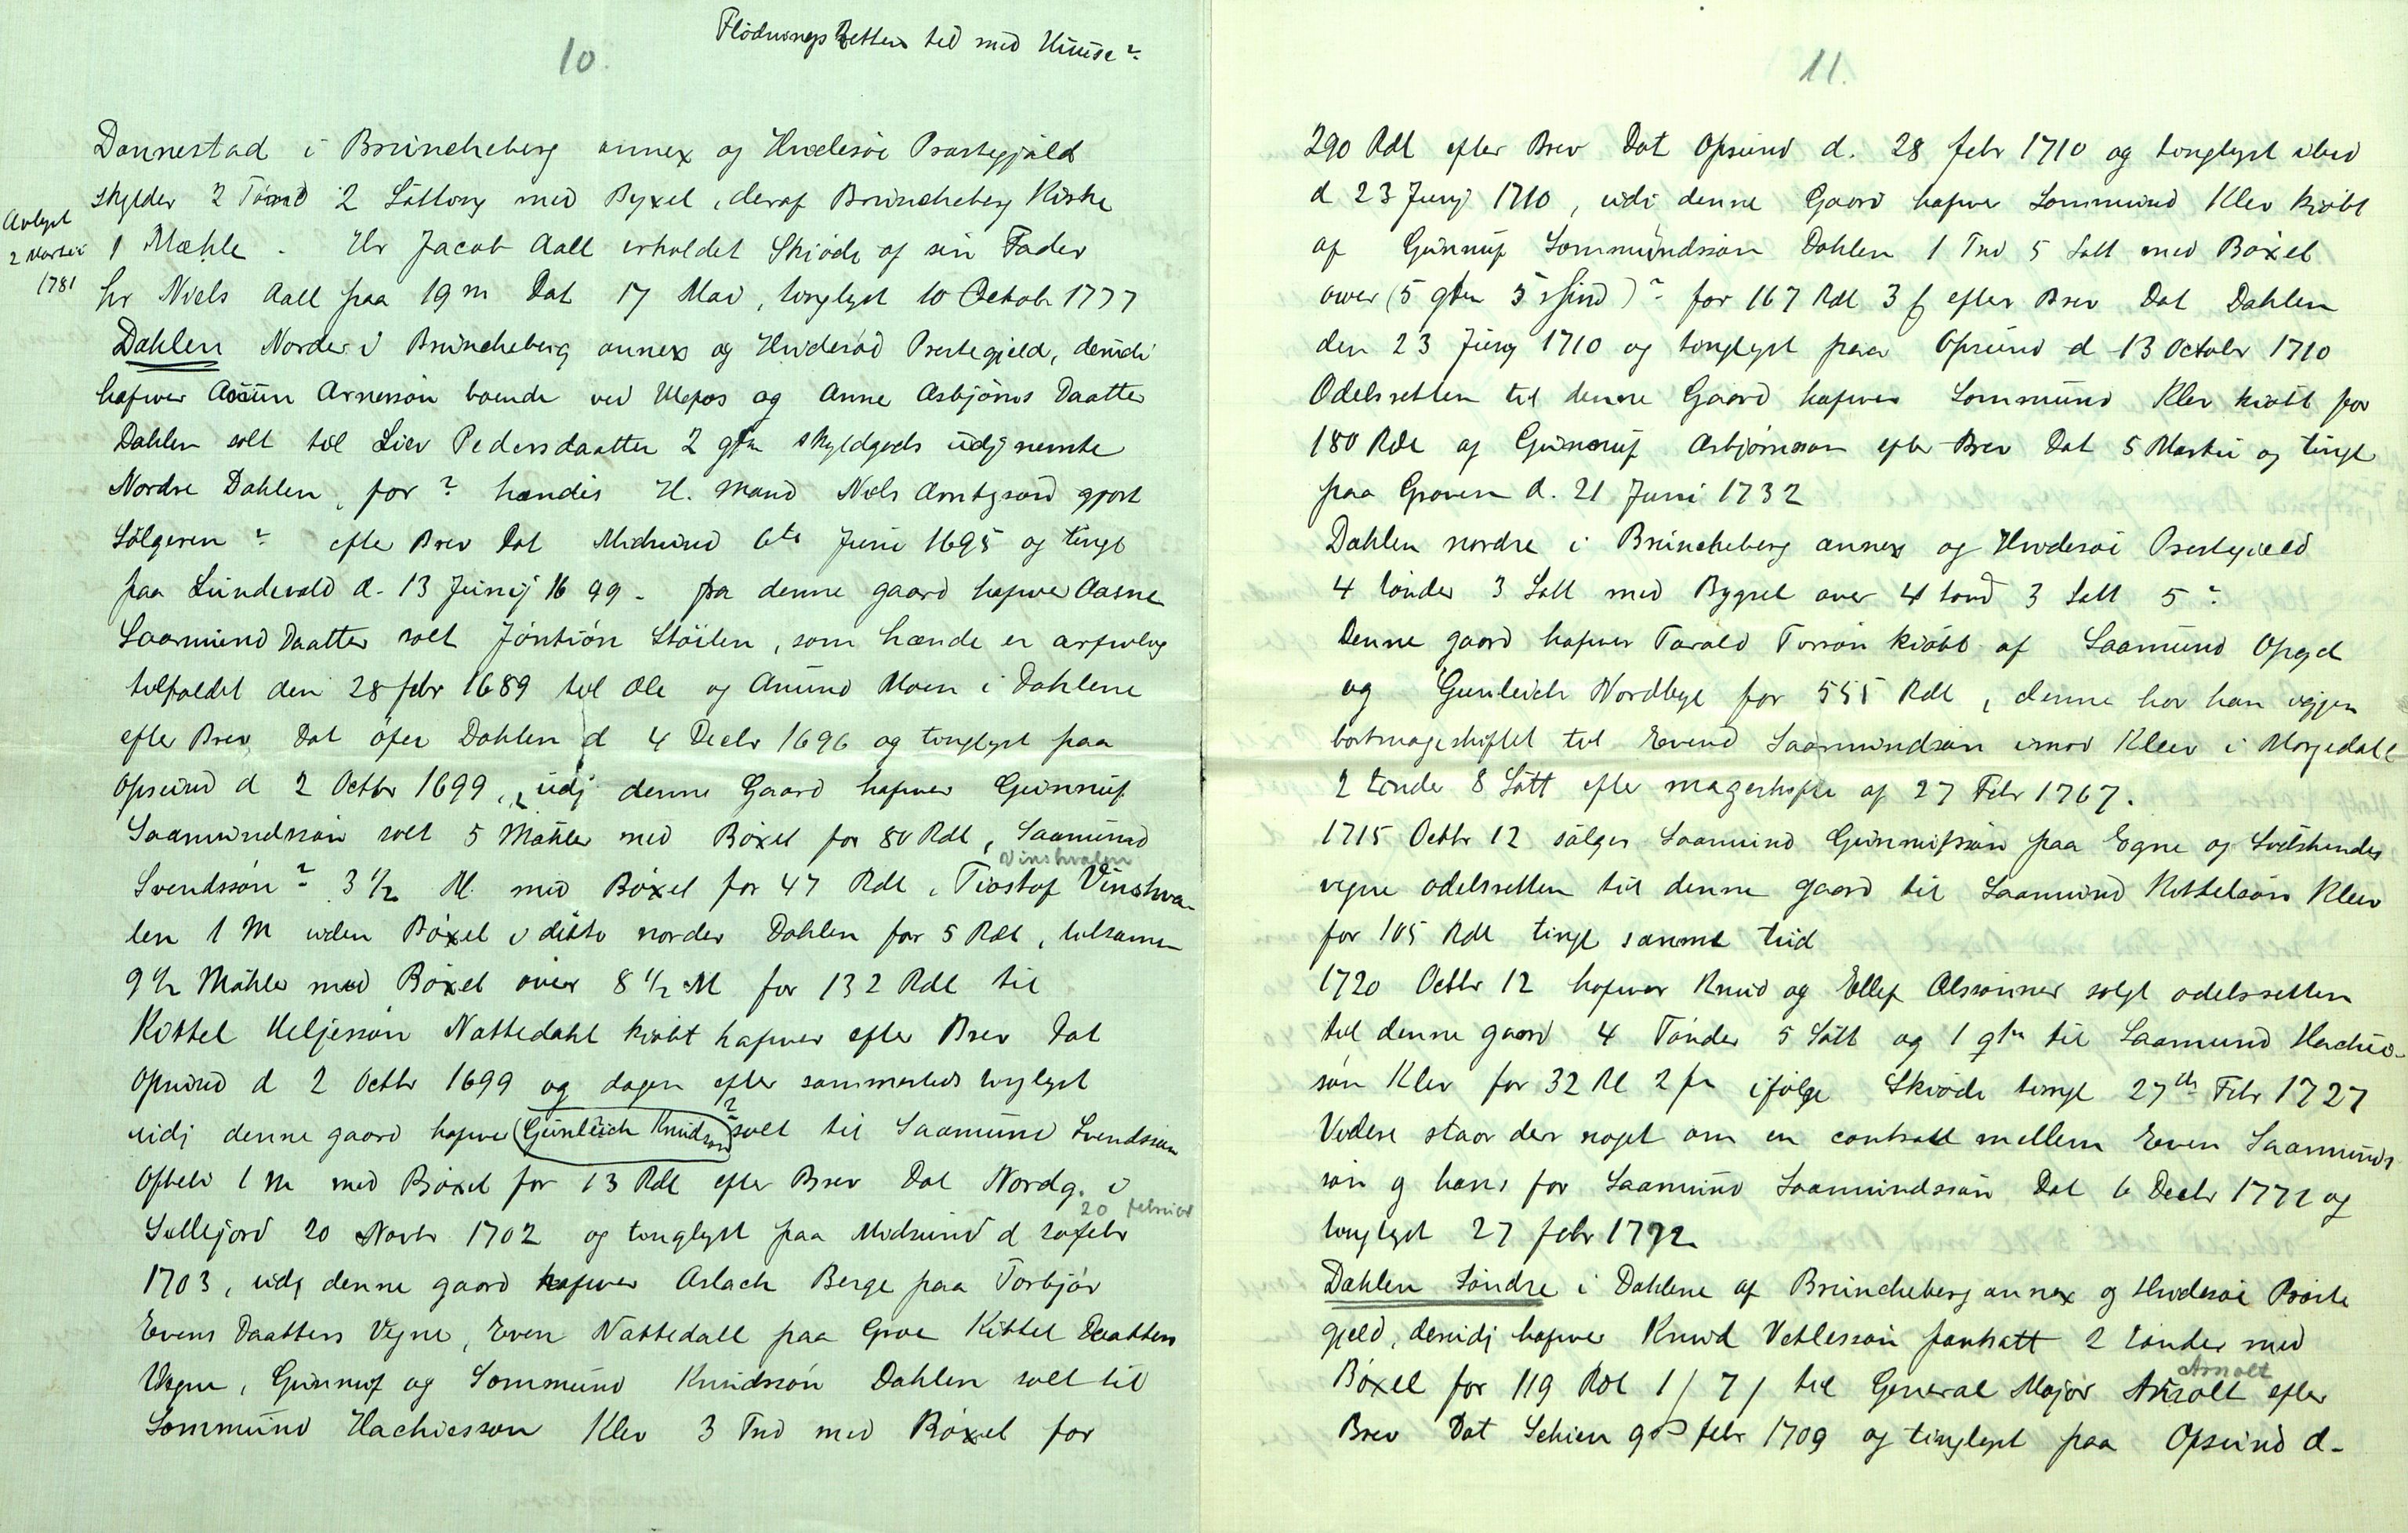 10.
Flödnings Retten til med Huuse?
Dannestad i Brüncheberg annex og Hvidesöe Præstegjæld
skylder 2 Tönd 2 Sötting med Byxel, deraf Brüncheberg Kirke
Avlyst
2 Martii
1781
1 Mæhle. Hr Jacob Aall erholdet Skiöde af sin Fader
hr Niels Aall paa 19 m Dat 17 Mai, tinglyst 10 Octobr 1777
Dahlen Norder i Brüncheberg annex og Hvidesöd Prestegield, derudi
hafuer Arnesson boende ved Ulefos og Anne Asbjörns Daatter
Dahlen solt til Liev Pedersdaatter 2 gtn skyldgods udj nemte
Nordre Dahlen, for ? hændis H. Mand Niels gjort
Sölgeren ? efter Brev Dat Midsund 6te Juni 1695 og tingl
paa Lundevald d. 13 Junij 1699. fra denne gaard hafuer Aasne
Saamund Daatter solt Jöntiön Stöilen, som hænde er arfvelig
tilfaldet den 28 febr 1689 til Ole og Anund Moen i Dahlene
efter Brev Dat öfer Dahlen d 4 Decbr 1696 og tinglyst paa
Opsund d 2 Octbr 1699, udj denne Gaard hafuer Gunnuf
Saamundssön solt 5 Mähler med Böxel for 80 Rdl, Saamund
Vinshvalen
Svendssön ? 3 1/2 M. med Böxel for 47 Rdl, Tiostof Vinshva-
len 1 M uden Böxel i ditto norder Dahlen for 5 Rdl, tilsamen
9 1/2 Mähler med Böxel över 8 1/2 M for 132 Rdl til
Kittel Heljessön Nattedahl kiöbt hafuer efter Brev Dat
Opsund d 2 Octbr 1699 og dagen efter sammesteds tinglyst
udj denne gaard hafuer (Gunleich Knudssön)? solt til Saamund Svendssön
1 M med Böxel for 13 Rdl efter Brev Dat Nordg. i
20 februar
Sillejord 20 Novbr 1702 og tinglyst paa Midsund d 20 febr
1703, udj denne gaard hafuer Aslach Berge paa Torbjör
Evens Daatters Vegne, Even Nattedall paa Groe Kittel Daatters
Vegne, Gunnuf og Sommund Knudssön Dahlen solt til
Sommund Hachiesson Klev 3 Tnd med Böxel for
11.
290 Rdl efter Brev Dat Opsund d. 28 febr 1710 og tinglyst ibid
d 23 Junj 1710, udi denne Gaard hafuer Sommund Klev kiöbt
af Gunnuf Sommundssön Dahlen 1 Tnd 5 Sött med Böxel
over (5 gtn 5 )? for 167 Rdl 3 efter Brev Dat Dahlen
den 23 Juny 1710 og tinglyst paa Opsund d 13 Octobr 1710
Odelsretten til denne Gaard hafuer Sommund Klev kiöbt for
180 Rdl af Gunnuf Asbjörnsson efter Brev Dat 5 Martii og tingl
paa Groven d. 21 Juni 1732
Dahlen nordre i Brüncheberg annex og Hvidesöe Prestegield
4 tönder 3 Sött med Bygsel over 4 tønd 3 Sött 5 ?
Denne gaard hafuer Tarald Torsön kiöbt af Saamund Opgd
og Gunleich Nordbye for 555 Rdl, denne har han igjen
bortmageskiftet til Evend Saamundsön imod Klev i Morgedall
2 tönder 8 Sött efter mageskifte af 27 Febr 1767.
1715 Octbr 12 sälger Saamund Gunnufssön paa Egne og Södskendes
vegne odelsretten til denne gaard til Saamund Kittelssön Klev
for 105 Rdl tingl samme tiid
1720 Octbr 12 hafuer Knud og Ellef Olssönner solgt odelsretten
til denne gaard 4 Tönder 5 Sött og 1 gtn til Saamund Hachies-
sön Klev for 32 Rdl 2 ifölge Skiöde tingl 27de Febr 1727
Videre staar der noget om en contract mellem Even Saamunds-
sön og hans for Saamund Saamundssön Dat 6 Decbr 1771 og
tinglyst 27 febr 1772
Dahlen Söndre i Dahlene af Brüncheberg annex og Hvidesöe Præste
gield, derudj hafuer Knud Vetlessön pantsatt 2 tönder med
Arnolt
Böxel for 119 Rdl 1/ 7/ til General Major Arnolt efter
Brev Dat Schien 9de febr 1709 og tinglyst paa Opsund d-